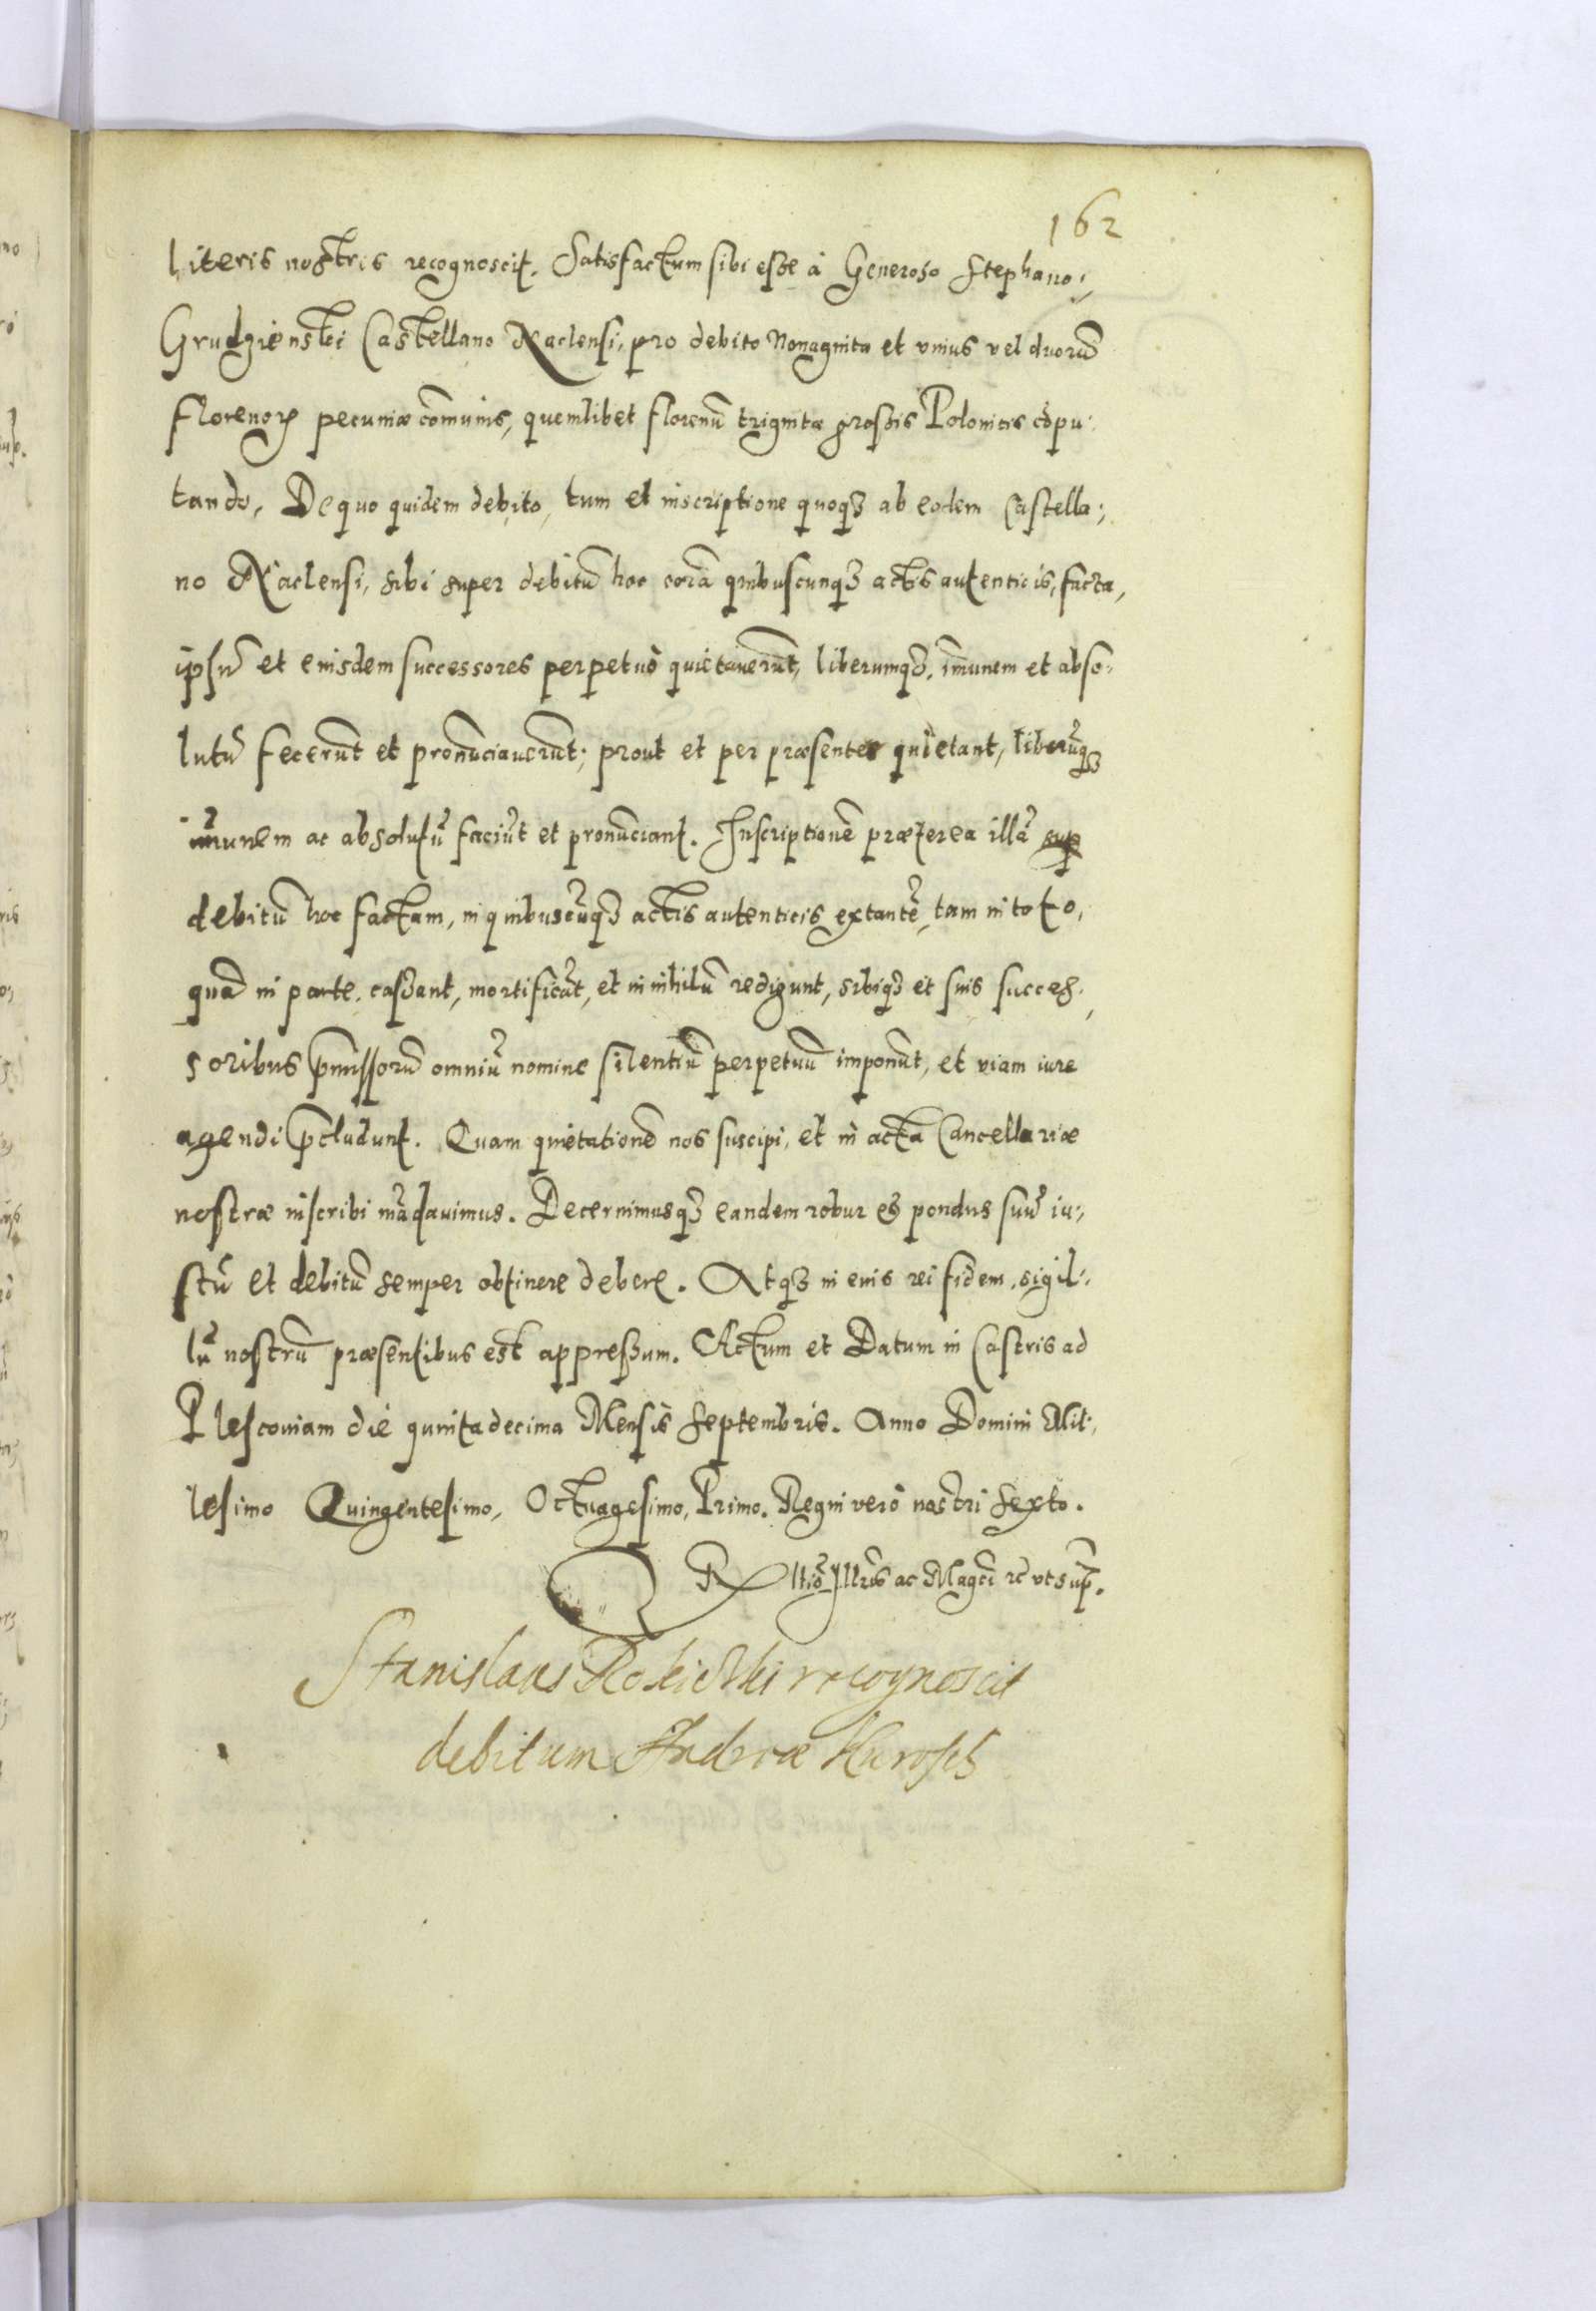 162
literis nostris recognoscit. Satisfactum sibi esse à Generoso Stephano
Grudzienski Castellano Naclensi, pro debito Nonaginta et vnius vel duorũ
florenorꝝ pecuniæ com̃unis, quemlibet florenũ triginta grossis Polonicis cõpu-
tando, De quo quidem debito, tum et inscriptione quoqꝫ ab eodem Castella-
no Naclensi, sibi super debitũ hoc corã quibuscunqꝫ actis autenticis, facta,
ipsũ et eiusdem successores perpetuò quietauerũt, liberumqꝫ, im̃unem et abso-
lutũ fecerũt et pronũciauerũt; prout et per præsentes quietant, liberũqꝫ
im̃unem ac absolutũ faciũt et pronũciant. Inscriptionẽ præterea illã sup
debitũ hoc factam, in quibuscũqꝫ actis autenticis extantẽ, tam in toto,
quã in parte, cassant, mortificãt, et in nihilũ redigunt, sibiqꝫ et suis succes-
soribus p̃missorũ omniũ nomine silentiũ perpetuũ imponũt, et viam iure
agendi p̃cludunt. Quam quietationẽ nos suscipi, et in acta Cancellariæ
nostræ inscribi mãdauimus. Decernimusqꝫ eandem robur et pondus suũ iu-
stũ et debitũ semper obtinere debere. Atqꝫ in euis rei fidem, sigil-
lũ nostrũ præsentibus est appressum. Actum et Datum in Castris ad
Plescouiam die quinta decima Mensis Septembris. Anno Domini Mil-
lesimo Quingentesimo, Octuagesimo, Primo. Regni verò nostri sexto.
R̃ltio Illris ac Magci rc vt sup̃.
Stanislaus Kosickki recognoscit
debitum Andreæ